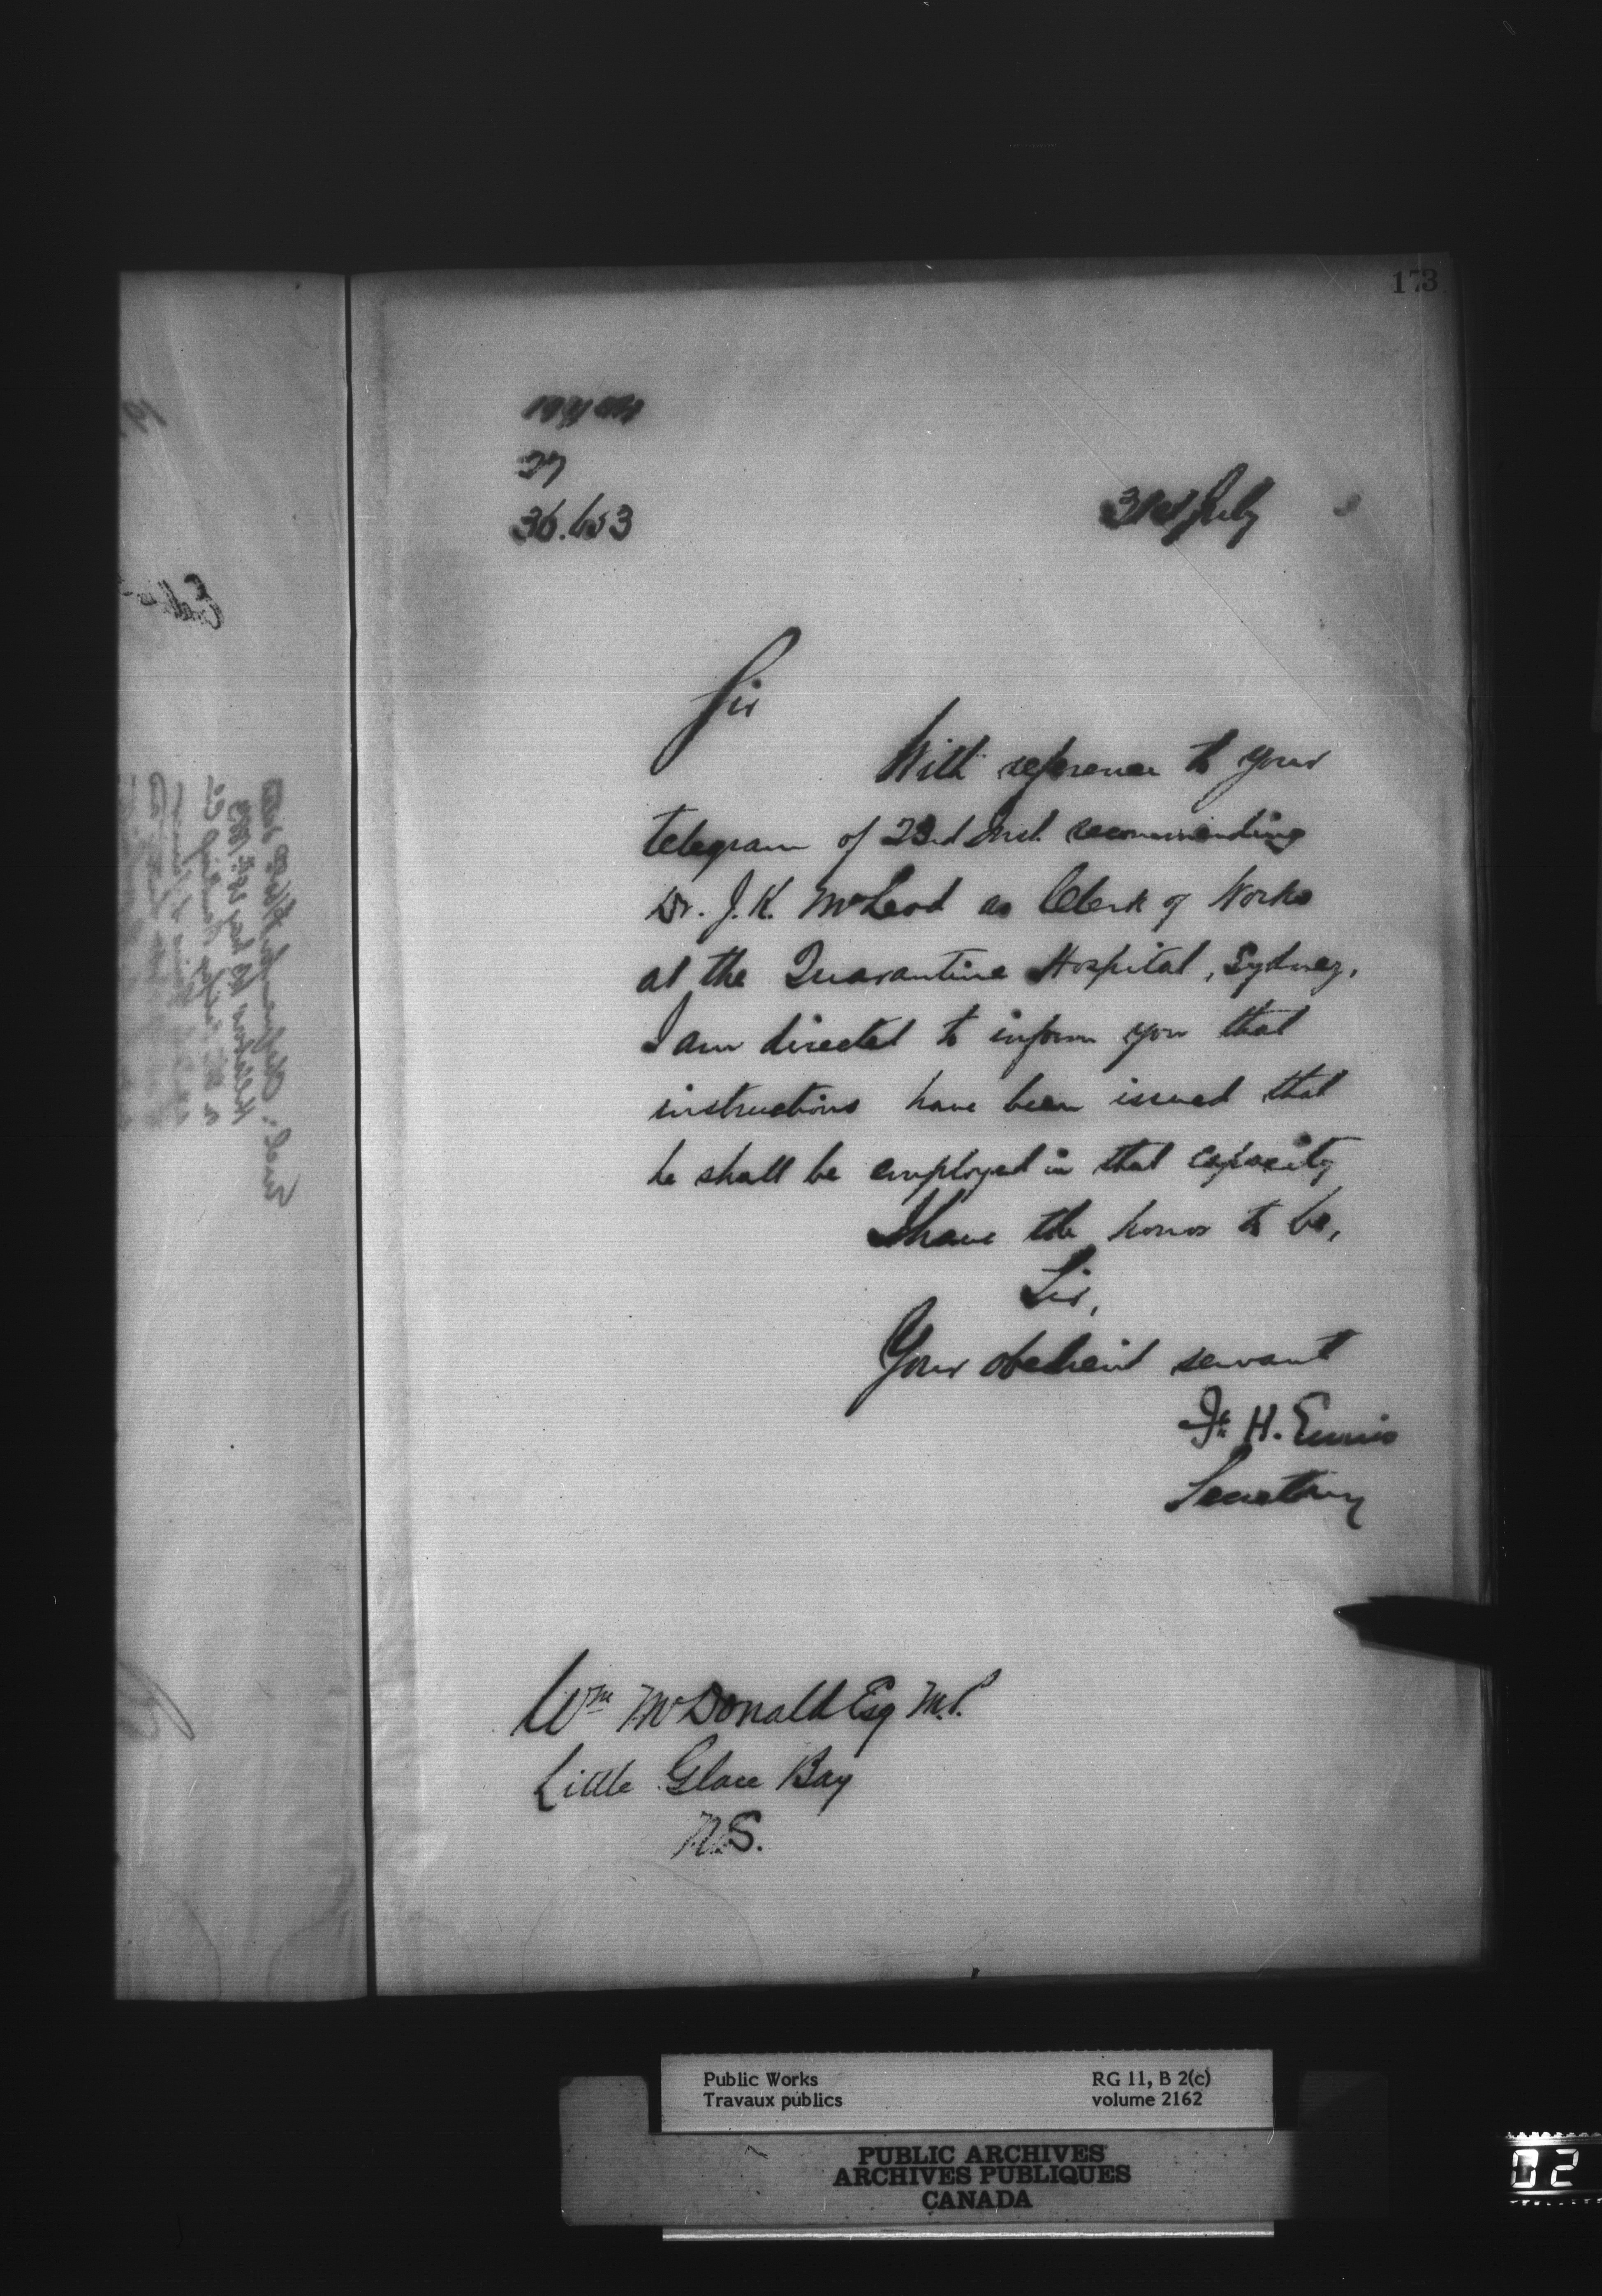 173
27
36.653
31st July
Sir
With reference to your
telegram of 23rd Inst. recommending
Dr. J. K. McLeod as Clerk of Works
at the Quarantine Hospital, Sydney,
I am directed to inform you that
instructions have been issued that
he shall be employed in that capacity
I have the honor to be,
Sir,
Your obedient servant
H. Ennis
Secretary
Wm McDonald Esq M.P.
Little Glace Bay
N.S.
Public Works
Travaux publics
RG 11, B 2(c)
volume 2162
PUBLIC ARCHIVES
ARCHIVES PUBLIQUES
CANADA
02